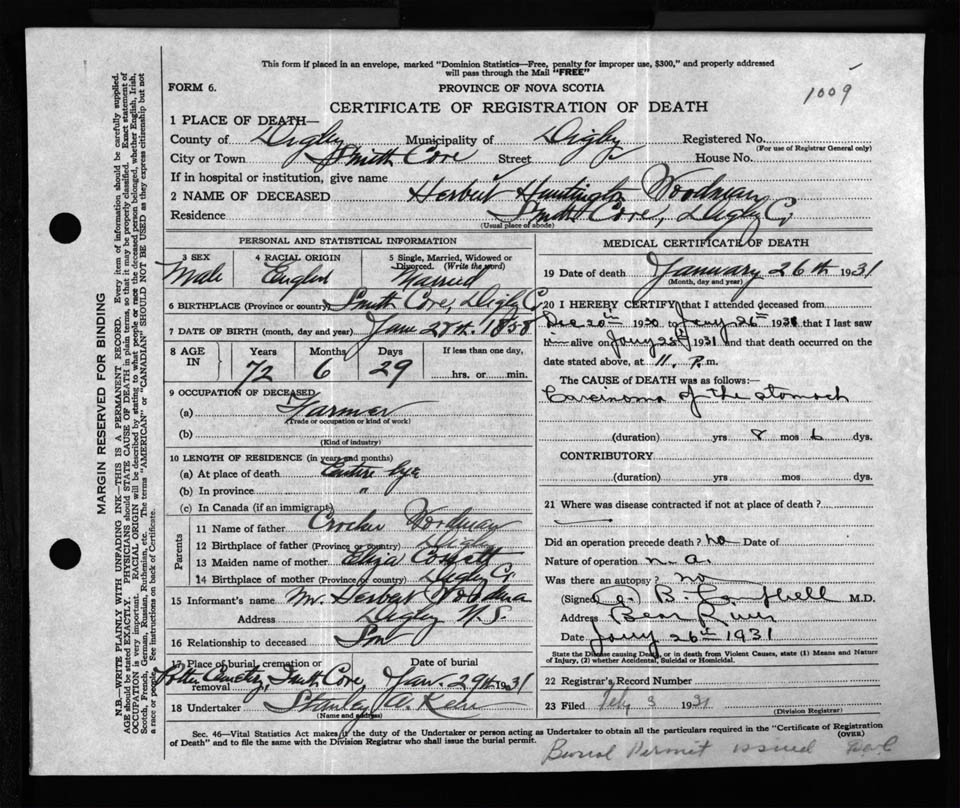 This form if placed in an envelope, marked "Dominion Statistics—Free, penalty for improper use, $300," and properly addressed
will pass through the Mail "FREE"
FORM 6.
PROVINCE OF NOVA SCOTIA
1009
CERTIFICATE OF REGISTRATION OF DEATH
1 PLACE OF DEATH—
County of Digby Municipality of Digby Registered No.
(For use of Registrar General only)
City or Town Smith Cove Street House No.
If in hospital or institution, give name
2 NAME OF DECEASED Herbert Huntington Woodman
Residence Smith Cove, Digby Co
(Usual place of abode)
PERSONAL AND STATISTICAL INFORMATION
3 SEX 4 RACIAL ORIGIN 5 Single, Married, Widowed or
Divorced. (Write the word)
Male Married
6 BIRTHPLACE (Province or country) Smith Cove, Digby Co
7 DATE OF BIRTH (month, day and year) 27th. 1858
8 AGE IN Years Months Days If less than one day,
72 6 29 hrs. or min.
9 OCCUPATION OF DECEASED
(a) Farmer
(Trade or occupation or kind of work)
(b)
(Kind of industry)
10 LENGTH OF RESIDENCE (in years and months)
(a) At place of death Entire life
(b) In province "
(c) In Canada (if an immigrant)
Parents
11 Name of father Woodman
12 Birthplace of father (Province or country) Digby
13 Maiden name of mother Eliza
14 Birthplace of mother (Province or country) Digby Co
15 Informant's name Mr. Herbert Woodman
Address Digby N.S.
16 Relationship to deceased Son
17 Place of burial, cremation or Date of burial
removal Cemetery, Smith Cove, Jan. 29th 1931
18 Undertaker Stanley A.
(Name and address)
MEDICAL CERTIFICATE OF DEATH
19 Date of death January 26th 1931
(Month, day and year)
20 I HEREBY CERTIFY that I attended deceased from
Dec 20th 1930 to Jany 26th 1931 that I last saw
him alive on Jany 25th 1931 and that death occurred on the
date stated above, at 11. P. m.
The CAUSE OF DEATH was as follows:—
Carcinoma of the stomach
(duration) yrs 8 mos 6 dys.
CONTRIBUTORY
(duration) yrs mos dys.
21 Where was disease contracted if not at place of death?
Did an operation precede death? no Date of
Nature of operation n.a.
Was there an autopsy? no
(Signed) B. Campbell M.D.
Address Bear River
Date Jany 26th 1931
State the Disease causing Death, or in death from Violent Causes, state (1) Means and Nature
of Injury, (2) whether Accidental, Suicidal or Homicidal.
22 Registrar's Record Number
23 Filed Feby 3 1931
(Division Registrar)
Sec. 46—Vital Statistics Act makes it the duty of the Undertaker or person acting as Undertaker to obtain all the particulars required in the "Certificate of Registration
of Death" and to file the same with the Division Registrar who shall issue the burial permit.
(OVER)
Burial Permit issued
MARGIN RESERVED FOR BINDING
N.B.—WRITE PLAINLY WITH UNFADING INK—THIS IS A PERMANENT RECORD. Every item of information should be carefully supplied.
AGE should be stated EXACTLY. PHYSICIANS should STATE CAUSE OF DEATH in plain terms, so that it may be properly classified. Exact statement of
OCCUPATION is very important. RACIAL ORIGIN will be described by stating to what people or race the deceased person belonged, whether English, Irish,
Scotch, French, German, Russian, Ruthenian, etc. The terms "AMERICAN" or "CANADIAN" SHOULD NOT BE USED as they express citizenship but not
a race or people. See instructions on back of Certificate.